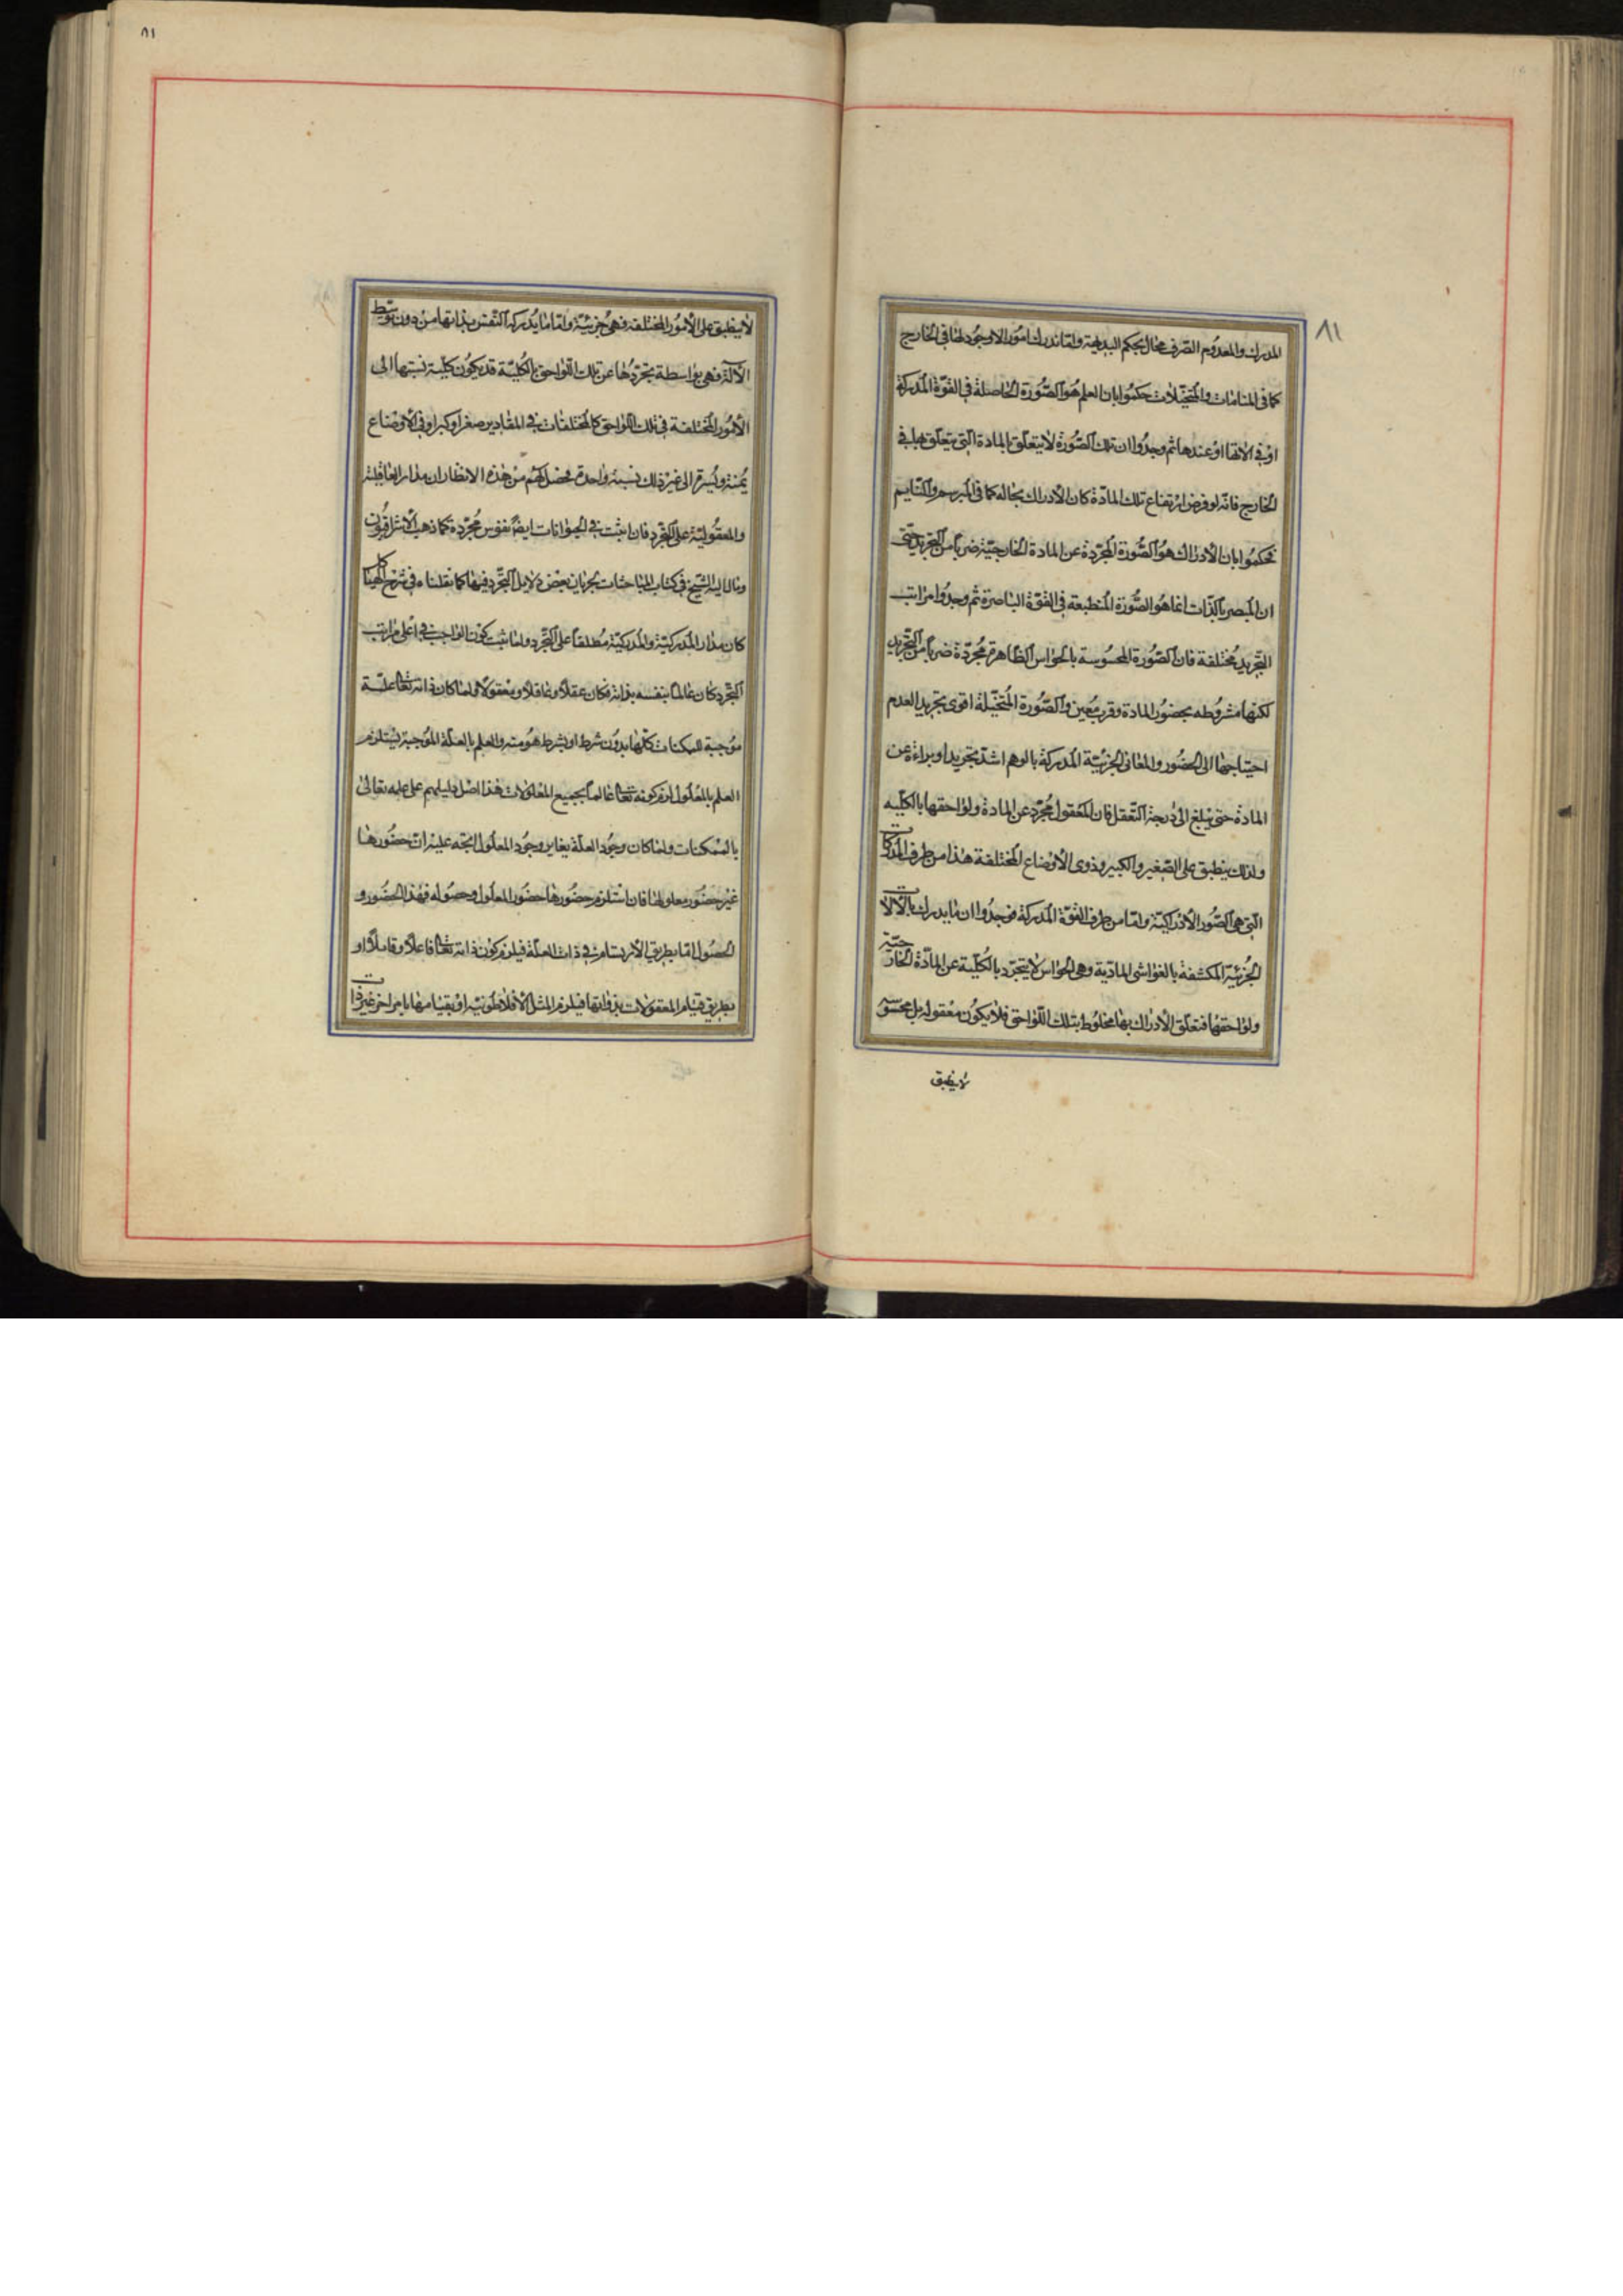 ٨١
المدرك والمعدوم الصرف محال بحكم البديهة ولما ندرك امورا لا وجود لها فى الخارج
كما فى المنامات والمتخيلات حكموا بان العلم هو الصورة الحاصلة فى القوة المدركة
او فى الاتها او عندها ثم وجدوا ان تلك الصورة لا يتعلق بالمادة التى يتعلق بها فى
الخارج فانه لو فرض ارتفاع تلك المادة كان الادراك بحاله كما فى المبرسم والنايم
فحكموا بان الادراك هو الصورة المجردة عن المادة الخارجية ضربا من التجريد حتى
ان المبصر بالذات انما هو الصورة المنطبعة فى القوة الباصرة ثم وجدوا مراتب
التجريد مختلفة فان الصورة المحسوسة بالحواس الظاهرة مجردة ضربا من التجريد
لكنها مشروطه بحضور المادة وقرب معين والصورة المتخيلة اقوى تجريدا لعدم
احتياجها الى الحضور والمعانى الجزئية المدركة بالوهم اشد تجريدا وبراءة عن
المادة حتى يبلغ الى درجة التعقل فان المعقول مجرد عن المادة ولواحقها بالكليه
ولذلك ينطبق على الصغير والكبير وذوى الاوضاع المختلفة هذا من طرف المدركات
التى هى الصور الادراكية واما من طرف القوة المدركة فوجدوا ان ما يدرك بالالات
الجزئية المكتنفة بالغواشى المادية وهى الحواس لا يتجرد بالكلية عن المادة الخارجية
ولواحقها فتعلق الادراك بها مخلوط بتلك اللواحق فلا يكون معقوله بل محسوسة
لا ينطبق
٨١
لا ينطبق على الامور المختلفة فهى جزئية واما ما يدركه النفس بذاتها من دون توسط
الآلة فهى بواسطة تجردها عن تلك اللواحق بالكلية قد يكون كلية نسبتها الى
الامور المختلفة فى تلك اللواحق كالمختلفات فى المقادير صغرا وكبرا وفى الاوضاع
يمنة ويسرة الى غير ذلك نسبة واحدة فحصل لهم من هذه الانظار ان مدار العاقلية
والمعقولية على التجرد فان اثبت فى الحيوانات ايضا نفوس مجردة كما ذهب الاشراقيون
ومال اليه الشيخ فى كتاب المباحثات بجريان بعض دلايل التجرد فيها كما نقلناه فى شرح الهياكل
كان مدار المدركية والمدركية مطلقا على التجرد ولما ثبت كون الواجب فى اعلى مراتب
التجرد كان عالما بنفسه بذاته فكان عقلا وعاقلا ومعقولا ولما كان ذاته تعالى علة
موجبة للممكنات كلها بدون شرط او بشرط هو منه والعلم بالعلة الموجبة يستلزم
العلم بالمعلول لزم كونه تعالى عالما بجميع المعلولات هذا اصل دليلهم على علمه تعالى
بالممكنات ولما كان وجود العلة يغاير وجود المعلول اتجه عليه ان حضورها
غير حضور معلولها فان استلزم حضورها حضور المعلول وحصوله فهذا الحضور و
الحصول اما بطريق الارتسام فى ذات العلة فيلزم كون ذاته تعالى فاعلا وقابلا او
بطريق قيام المعقولات بذواتها فيلزم المثل الافلاطونية او بقيامها بامر اخر غير ذات